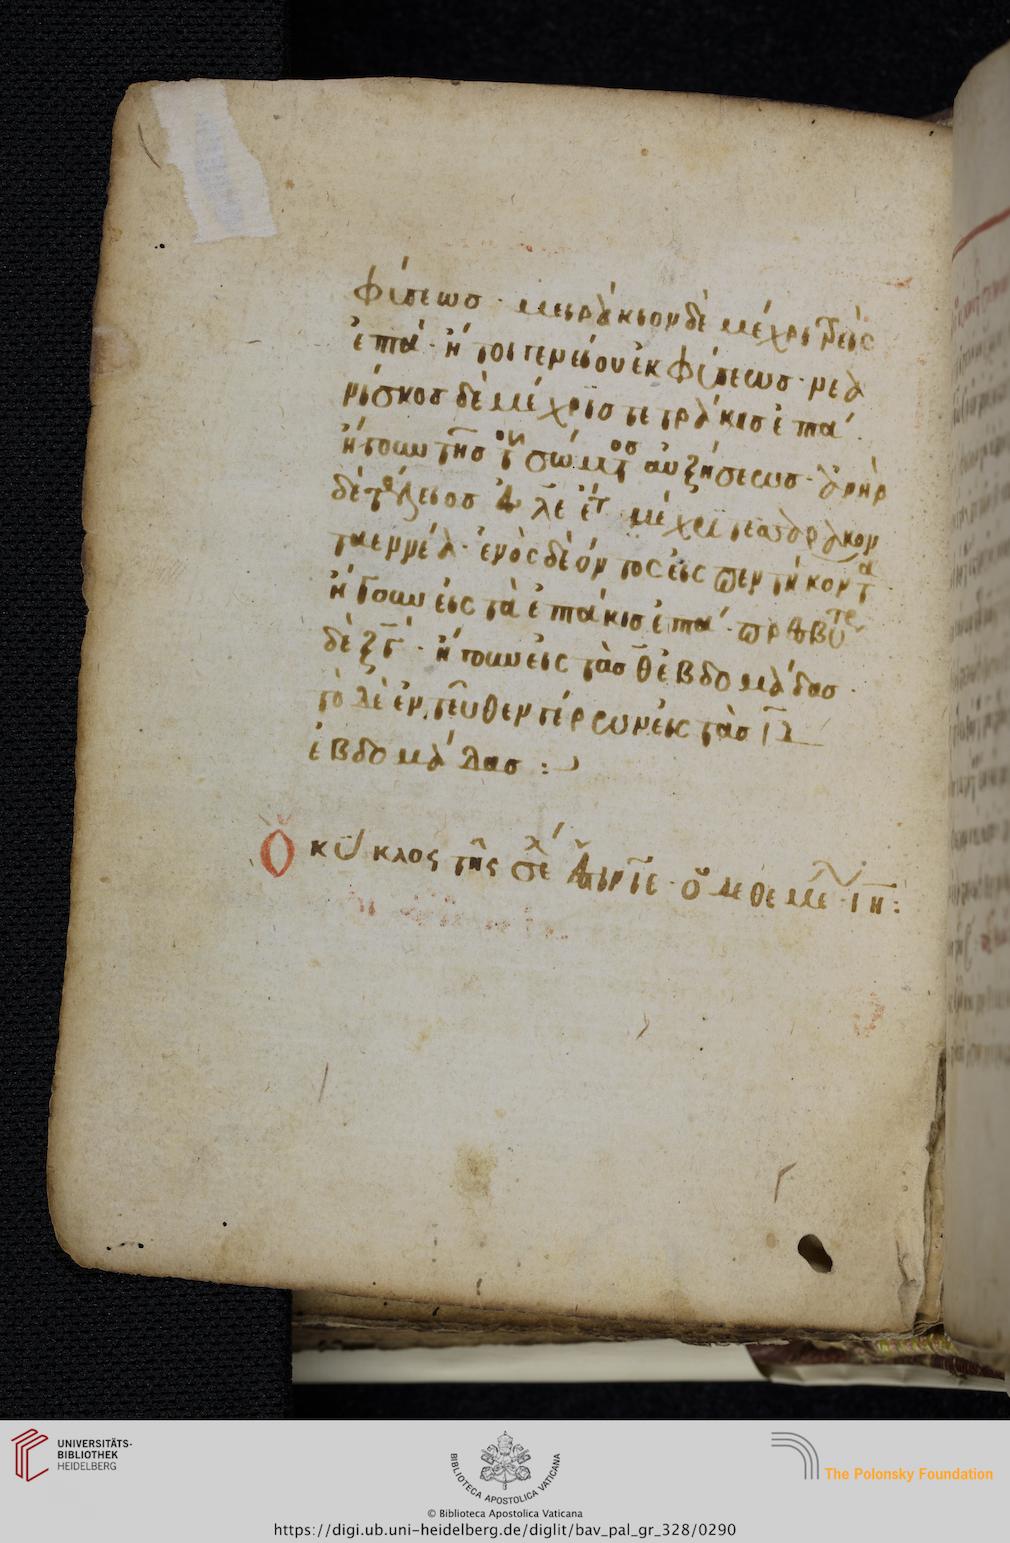 φύσεως · μειράκιον δὲ μέχρι τρὶς
ἑπτά · ἤγουν γενείου ἐκφύσεως · νεα
νίσκος δὲ μέχρις τετράκις ἑπτά
ἤγουν τῆς τοῦ σώματος αὐξήσεως · ἀνὴρ
δὲ τέλειος λε ἐτ μέχρι τεσσαράκον
ταεννέα · ἑνὸς δέοντος εἰς πεντήκοντα
ἤγουν εἰς τὰ ἑπτάκις ἑπτά · πρεσβύτης
δὲ ξγ · ἤγουν εἰς τὰς θ ἑβδομάδας ·
τὸ δὲ ἐντεῦθεν γέρων εἰς τὰς
ἑβδομάδας :
Ὁ κύκλος τῆς σε · ὁ μεθεμε ιη :
UNIVERSITÄTS-
BIBLIOTHEK
HEIDELBERG
BIBLIOTECA APOSTOLICA VATICANA
The Polonsky Foundation
© Biblioteca Apostolica Vaticana
https://digi.ub.uni-heidelberg.de/diglit/bav_pal_gr_328/0290